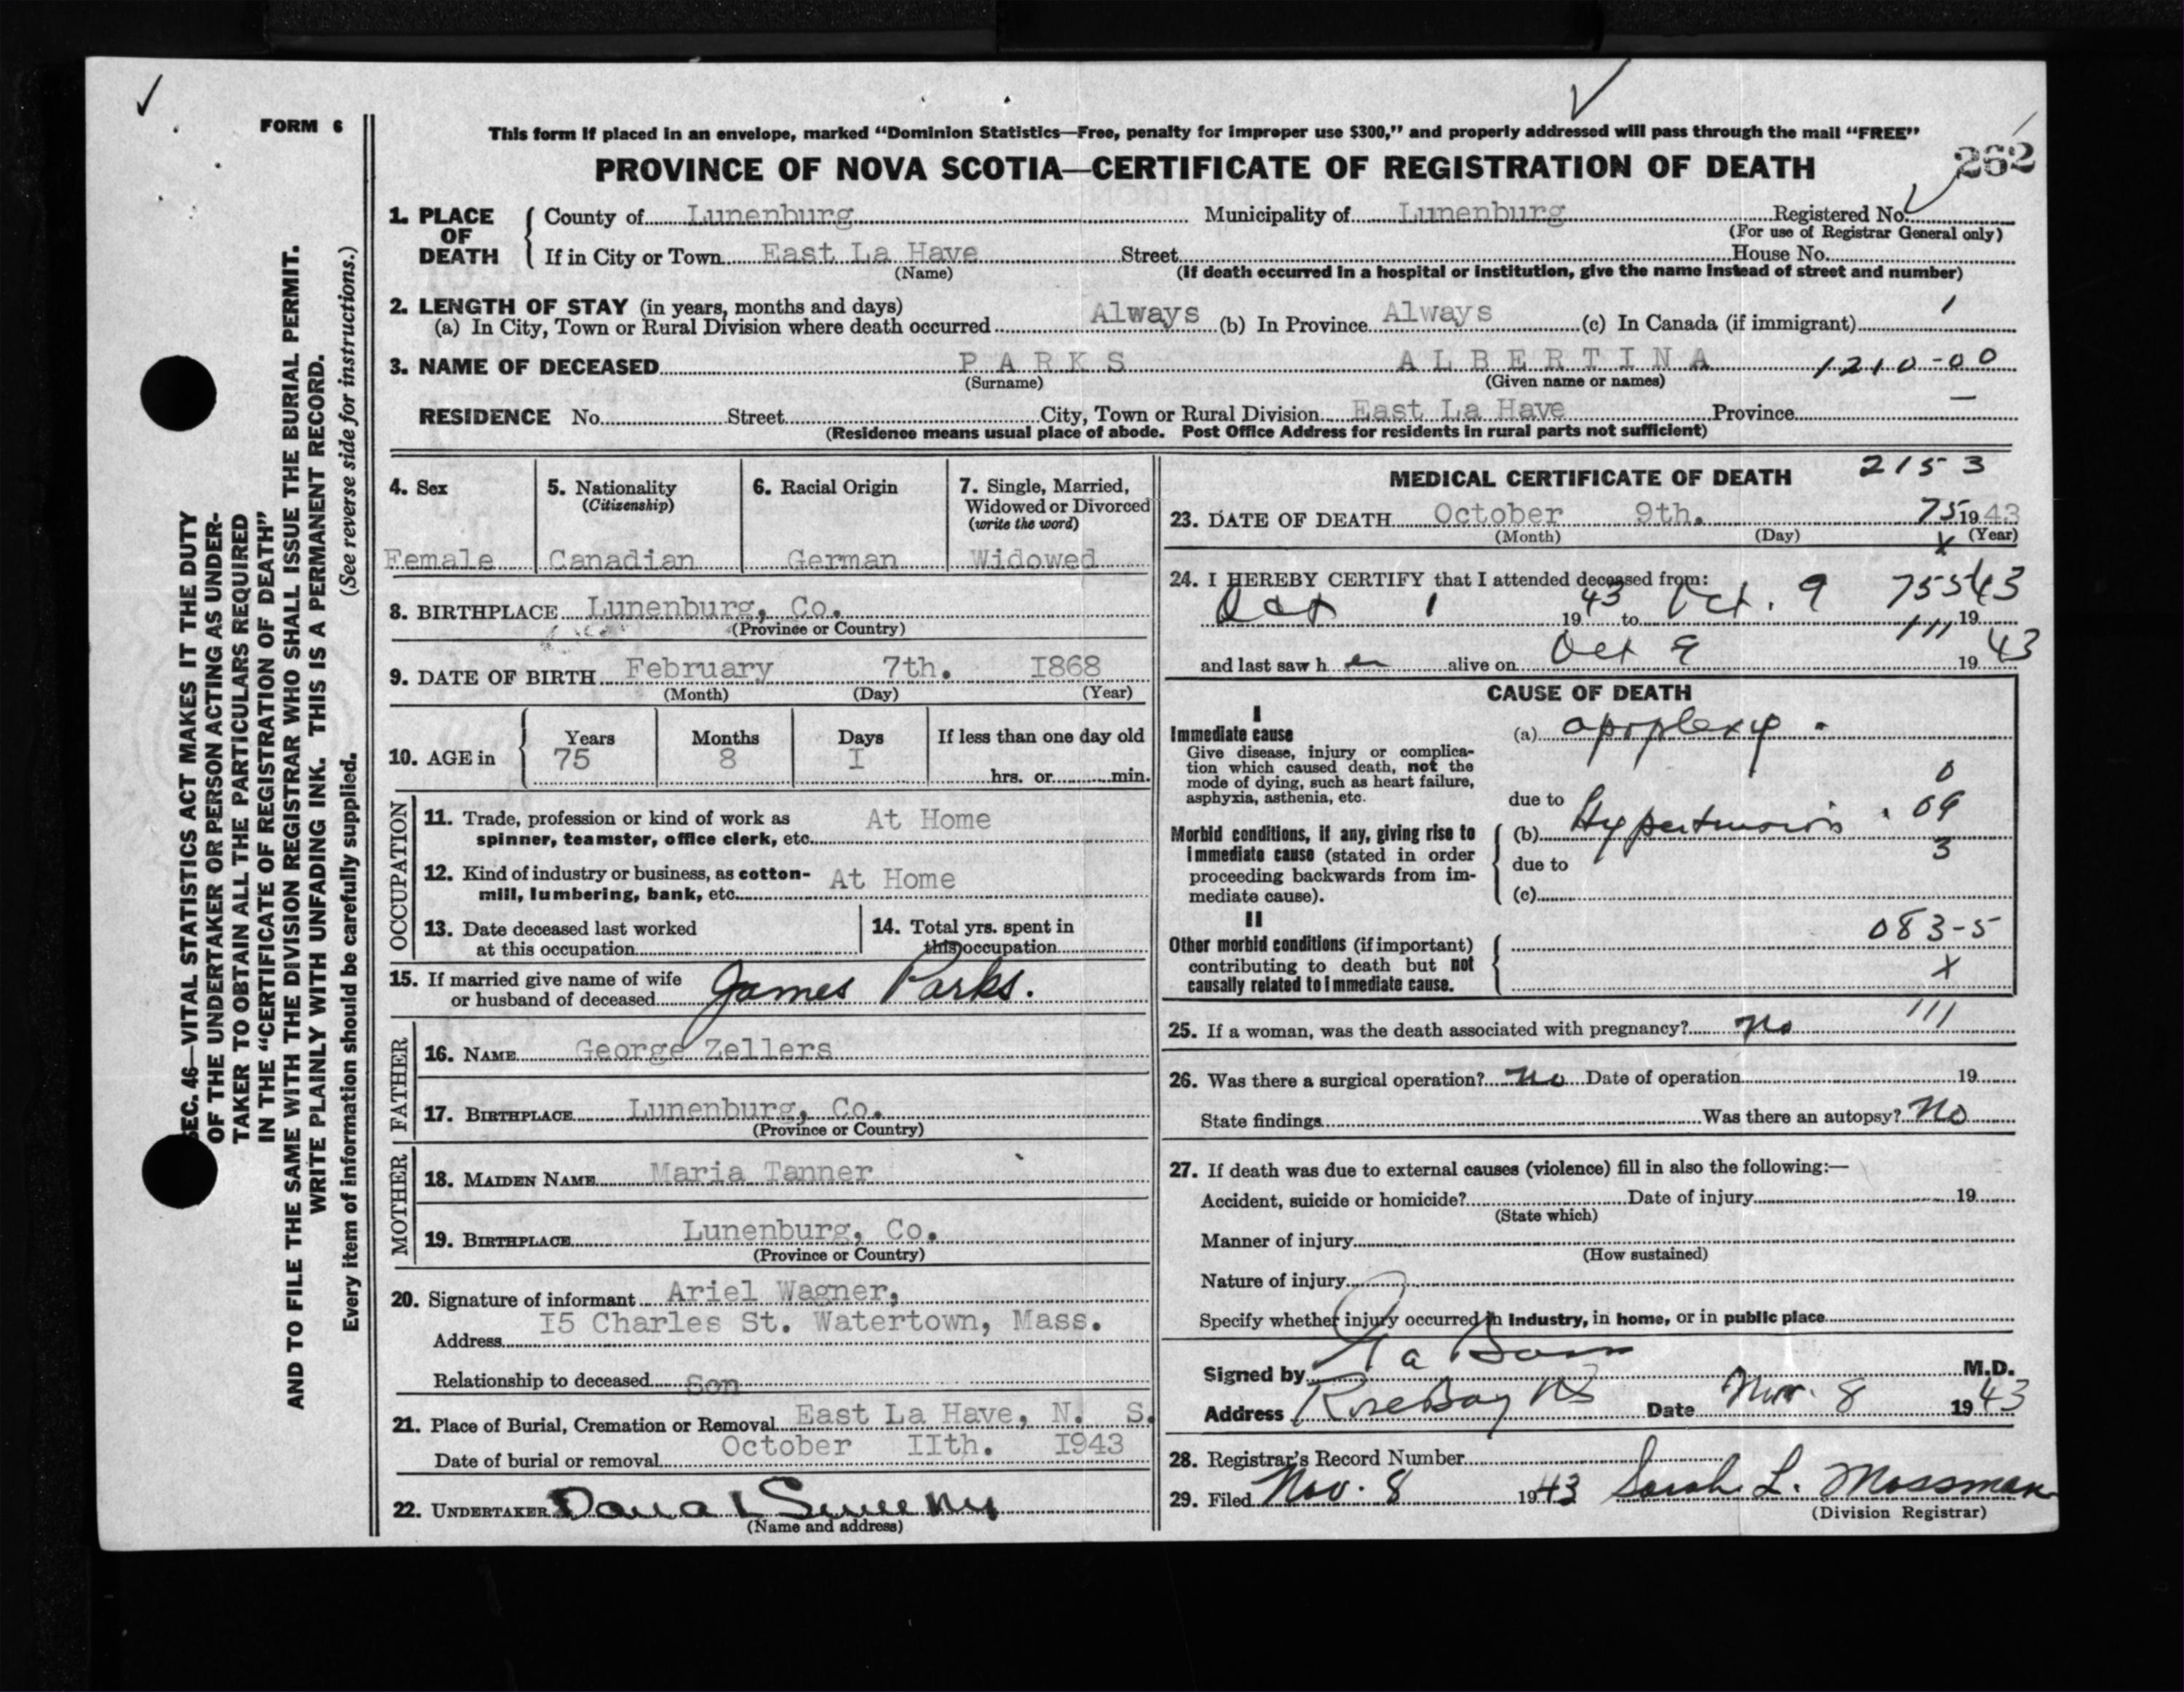 FORM 6
SEC. 46—VITAL STATISTICS ACT MAKES IT THE DUTY
OF THE UNDERTAKER OR PERSON ACTING AS UNDER-
TAKER TO OBTAIN ALL THE PARTICULARS REQUIRED
IN THE "CERTIFICATE OF REGISTRATION OF DEATH"
AND TO FILE THE SAME WITH THE DIVISION REGISTRAR WHO SHALL ISSUE THE BURIAL PERMIT.
WRITE PLAINLY WITH UNFADING INK. THIS IS A PERMANENT RECORD.
Every item of information should be carefully supplied. (See reverse side for instructions.)
This form if placed in an envelope, marked "Dominion Statistics—Free, penalty for improper use $300," and properly addressed will pass through the mail "FREE"
PROVINCE OF NOVA SCOTIA—CERTIFICATE OF REGISTRATION OF DEATH 262
1. PLACE OF DEATH
County of Lunenburg Municipality of Lunenburg Registered No.
(For use of Registrar General only)
If in City or Town East La Have Street House No.
(Name) (If death occurred in a hospital or institution, give the name instead of street and number)
2. LENGTH OF STAY (in years, months and days)
(a) In City, Town or Rural Division where death occurred Always (b) In Province Always (c) In Canada (if immigrant) 1
3. NAME OF DECEASED PARKS ALBERTINA 1210-00
(Surname) (Given name or names)
RESIDENCE No. Street City, Town or Rural Division East La Have Province
(Residence means usual place of abode. Post Office Address for residents in rural parts not sufficient)
4. Sex 5. Nationality 6. Racial Origin 7. Single, Married,
(Citizenship) Widowed or Divorced
(write the word)
Female Canadian German Widowed
8. BIRTHPLACE Lunenburg, Co.
(Province or Country)
9. DATE OF BIRTH February 7th. I868
(Month) (Day) (Year)
10. AGE in Years Months Days If less than one day old
75 8 I
hrs. or min.
OCCUPATION
11. Trade, profession or kind of work as At Home
spinner, teamster, office clerk, etc.
12. Kind of industry or business, as cotton- At Home
mill, lumbering, bank, etc.
13. Date deceased last worked 14. Total yrs. spent in
at this occupation this occupation
15. If married give name of wife James Parks.
or husband of deceased
FATHER
16. NAME George Zellers
17. BIRTHPLACE Lunenburg, Co.
(Province or Country)
MOTHER
18. MAIDEN NAME Maria Tanner
19. BIRTHPLACE Lunenburg, Co.
(Province or Country)
20. Signature of informant Ariel Wagner,
Address I5 Charles St. Watertown, Mass.
Relationship to deceased Son
21. Place of Burial, Cremation or Removal East La Have, N. S.
Date of burial or removal October IIth. I943
22. UNDERTAKER
(Name and address)
MEDICAL CERTIFICATE OF DEATH 2153
23. DATE OF DEATH October 9th. 75 1943
(Month) (Day) X (Year)
24. I HEREBY CERTIFY that I attended deceased from: 755
Oct 1 1943 to Oct. 9 1943
111
and last saw her alive on Oct 9 1943
CAUSE OF DEATH
I
Immediate cause (a) apoplexy
Give disease, injury or complica-
tion which caused death, not the
mode of dying, such as heart failure,
asphyxia, asthenia, etc.
due to 0
Morbid conditions, if any, giving rise to (b) Hypertension 09
immediate cause (stated in order due to 3
proceeding backwards from im-
mediate cause). (c)
II
Other morbid conditions (if important) 083-5
contributing to death but not X
causally related to immediate cause.
111
25. If a woman, was the death associated with pregnancy? No
26. Was there a surgical operation? No Date of operation 19
State findings Was there an autopsy? No
27. If death was due to external causes (violence) fill in also the following:—
Accident, suicide or homicide? Date of injury 19
(State which)
Manner of injury
(How sustained)
Nature of injury
Specify whether injury occurred in industry, in home, or in public place
Signed by M.D.
Address Rose Bay NS Date Nov. 8 1943
28. Registrar's Record Number
29. Filed Nov. 8 1943 Sarah L. Mossman
(Division Registrar)